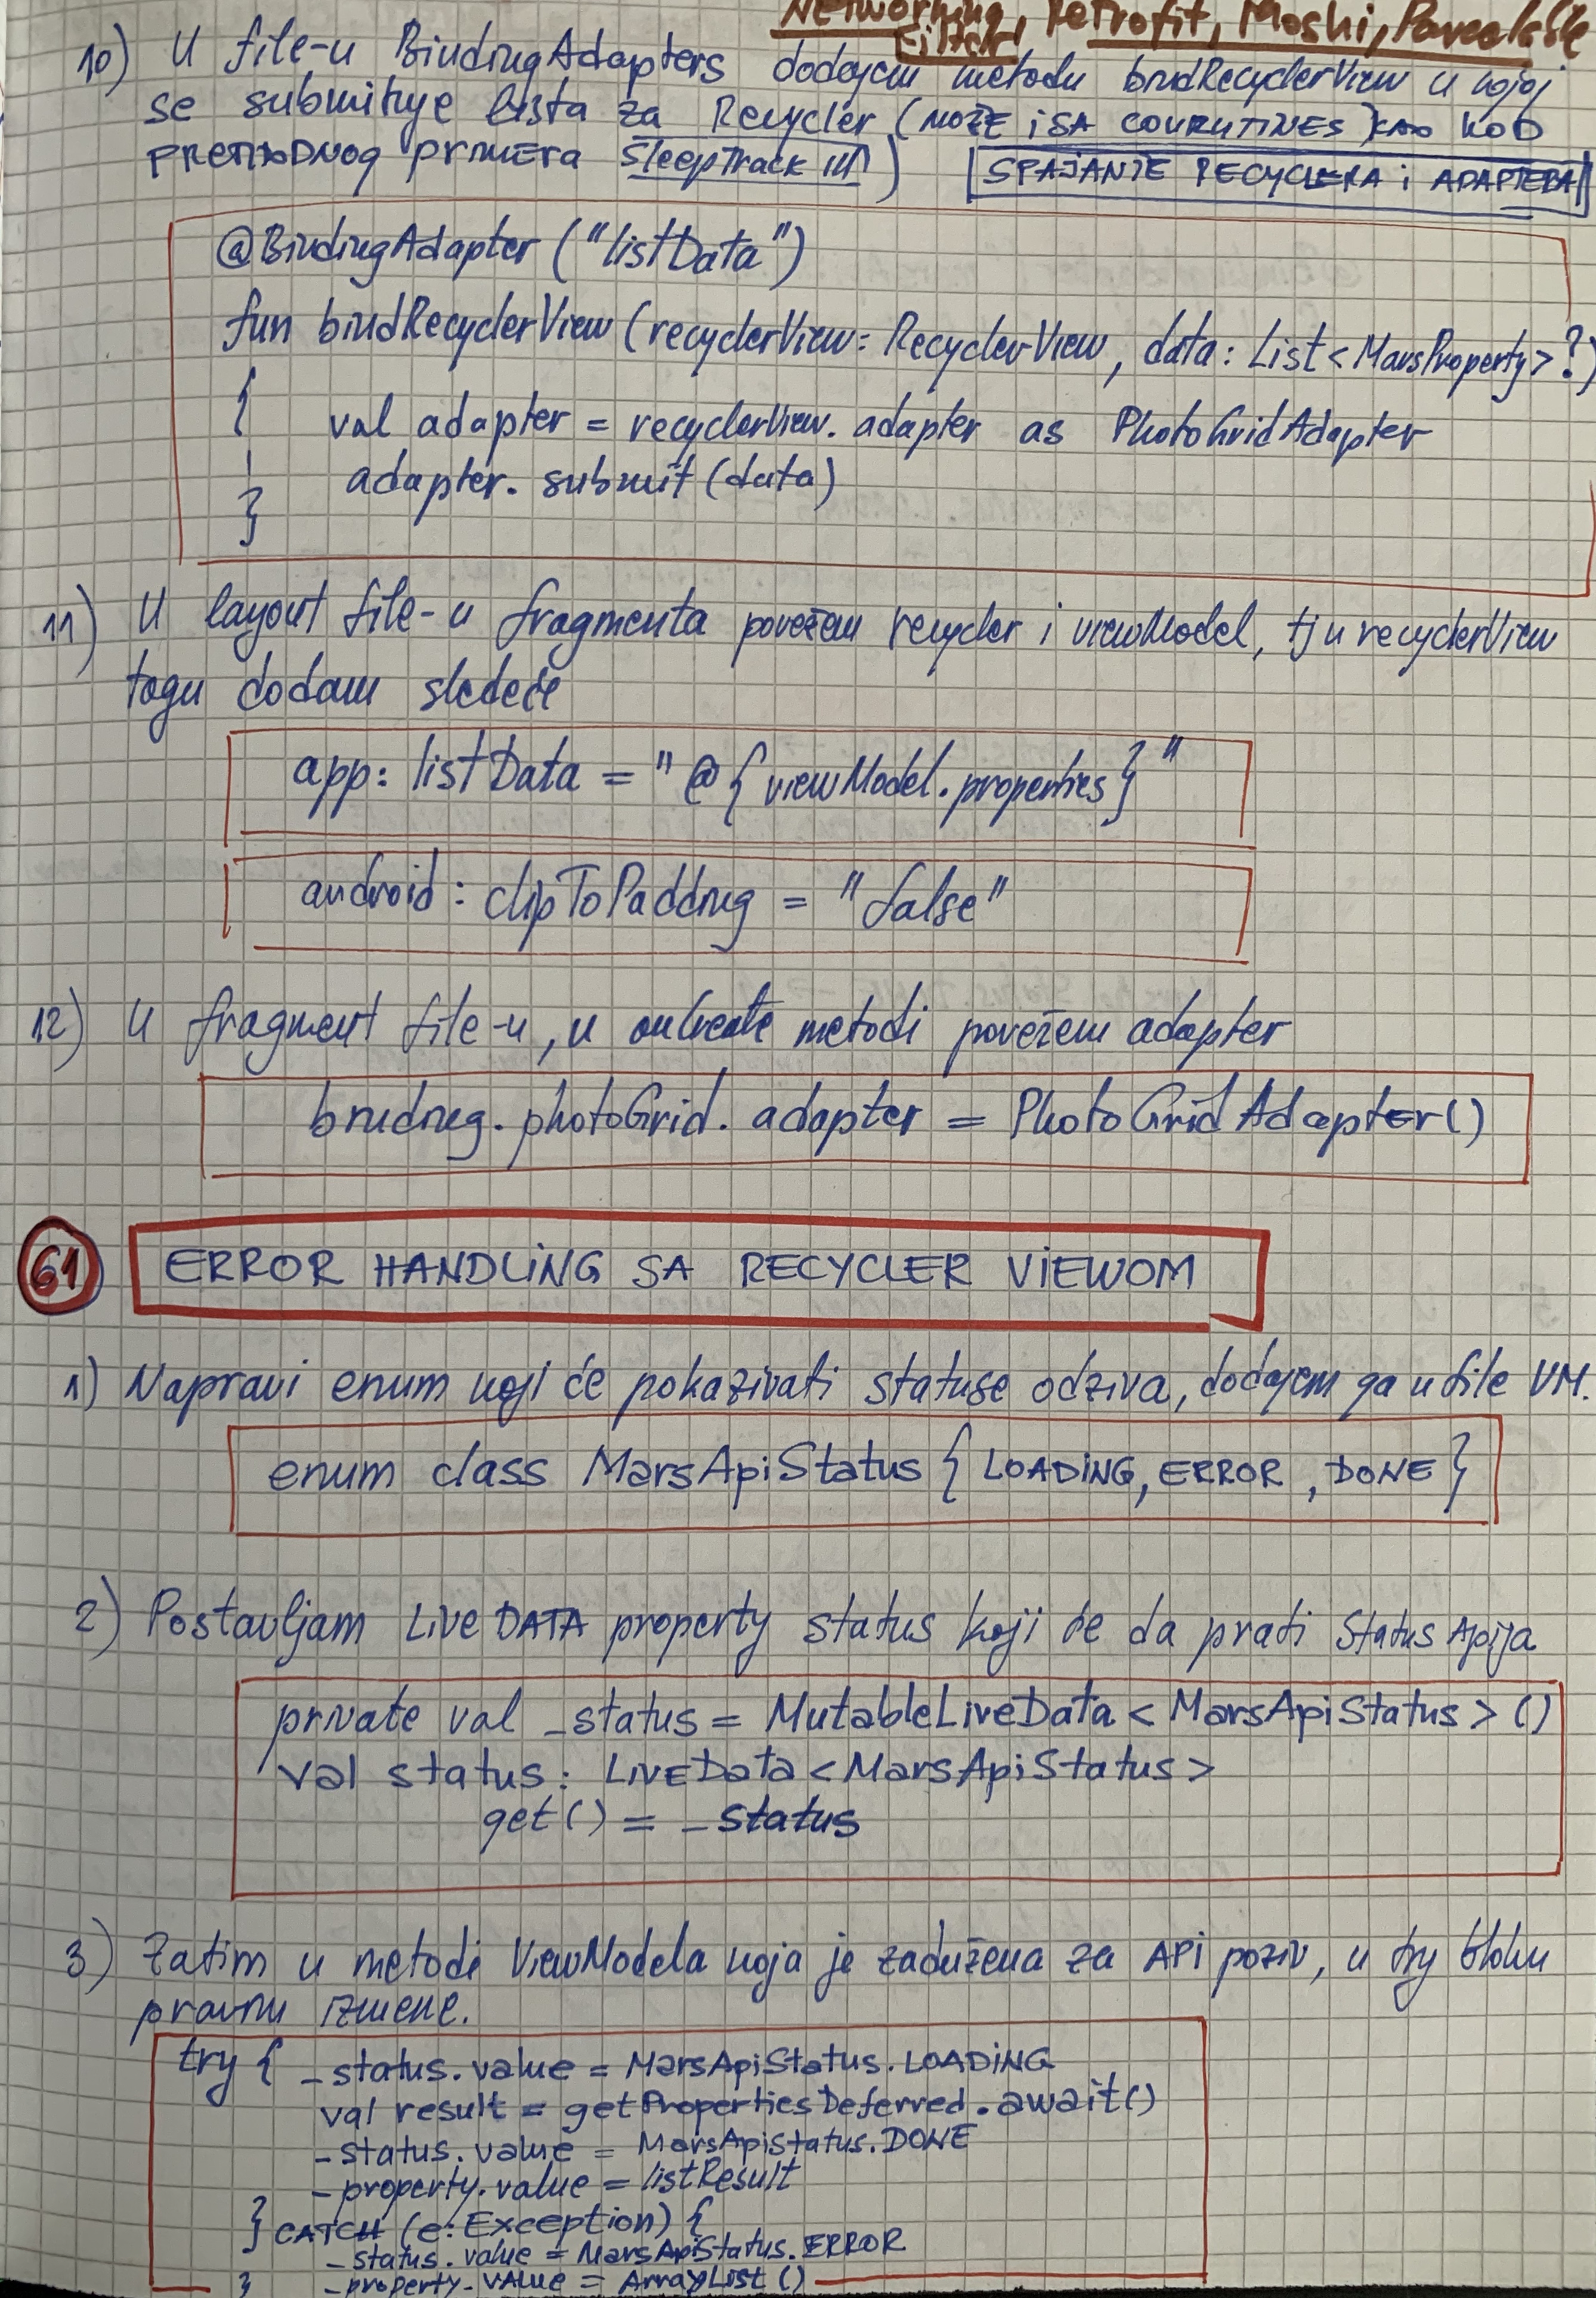 Networking, Retrofit, Moshi, Parcelable
Filter
10) U file-u BindingAdapters dodajem metodu bindRecyclerView u kojoj
se submituje lista za Recycler (MOŽE i SA COURUTINES) KAO KOD
PRETHODNOG PRIMERA SleepTrack III) SPAJANJE RECYCLERA i ADAPTERA
@BindingAdapter ("listData")
fun bindRecyclerView (recyclerView: RecyclerView, data: List<MarsProperty>?)
{ val adapter = recyclerView. adapter as PhotoGridAdapter
adapter. submit (data)
}
11) U layout file-u fragmenta povežem recycler i viewModel, tj u recyclerView
tagu dodam sledeće
app: listData = "@{viewModel.properties}"
android: clipToPadding = "false"
12) U fragment file-u, u onCreate metodi povežem adapter
binding. photoGrid. adapter = PhotoGridAdapter()
61 ERROR HANDLING SA RECYCLER VIEWOM
1) Napravi enum koji će pokazivati statuse odziva, dodajem ga u file VM.
enum class MarsApiStatus { LOADING, ERROR, DONE }
2) Postavljam LiveDATA property status koji će da prati Status Apija
private val _status = MutableLiveData<MarsApiStatus>()
val status: LiveData<MarsApiStatus>
get() = _status
3) Zatim u metodi ViewModela koja je zadužena za API poziv, u try bloku
pravim izmene.
try { _status.value = MarsApiStatus.LOADING
val result = getPropertiesDeferred.await()
_status.value = MarsApiStatus.DONE
_property.value = listResult
} CATCH (e: Exception) {
_status.value = MarsApiStatus.ERROR
} _property.VALUE = ArrayList()